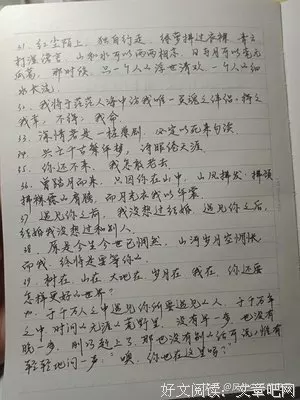 31. 红尘陌上，独自行走，绿萝拂过衣襟，青云
打湿诺言。山和水可以两两相忘，日与月可以毫无
瓜葛。那时候，只一个人的浮世清欢，一个人的细
水长流。
32. 我将于茫茫人海中访我唯一灵魂之伴侣。得之
我幸，不得，我命
33. 深情若是一桩悲剧，必定以死来句读
34. 兴亡千古繁华梦，诗眼倦天涯
35. 你还不来，我怎敢老去
36. 曾踏月而来，只因你在山中，山风拂发，拂颈
拂裸露的肩膀，而月光衣我以华裳
37. 遇见你之前，我没想过结婚，遇见你之后，
结婚我没想过和别人
38. 原是今生今世已惘然，山河岁月空惆怅
而我，终将是要等你的
39. 树在。山在。大地在。岁月在。我在。你还要
怎样更好的世界？
40. 于千万人之中遇见你所要遇见的人，于千万年
之中，时间的无涯的荒野里，没有早一步，也没有
晚一步，刚巧赶上了，那也没有别的话可说，惟有
轻轻地问一声："噢，你也在这里吗？"
好文阅读：文章吧网